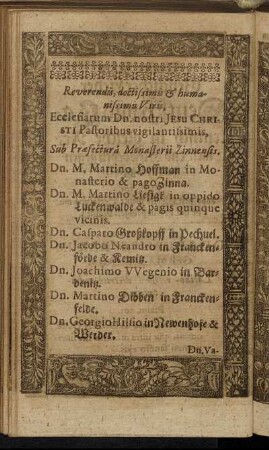 Reverendis, doctissimis & huma-
nissimis Viris,
Ecclesiarum Dn. nostri JESU CHRI-
STI Pastoribus vigilantissimis,
Sub Præfecturâ Monasterii Zinnensis.
Dn. M. Martino Hoffman in Mo-
nasterio & pago Zinna.
Dn. M. Martino in oppido
Luckenwalde & pagis quinque
vicinis.
Dn. Casparo Groskopff in Pechuel.
Dn. Jacobo Neandro in Francken-
förde & Kemnitz.
Dn. Joachimo VVegenio in Bar-
denitz.
Dn. Martino Dibben in Francken-
felde.
Dn. Georgio in Newenhofe &
Werder.
Dn. Va-